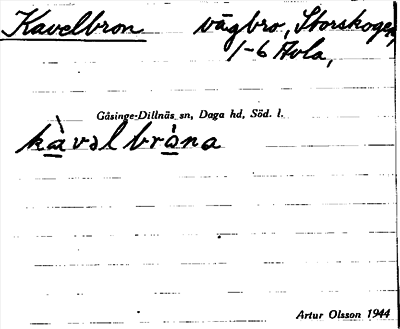 Kavelbron vägbro, Storskogen,
1-6 Avla,
Gåsinge-Dillnäs sn, Daga hd, Söd. l.
kàvəlbrò̀na
Artur Olsson 1944